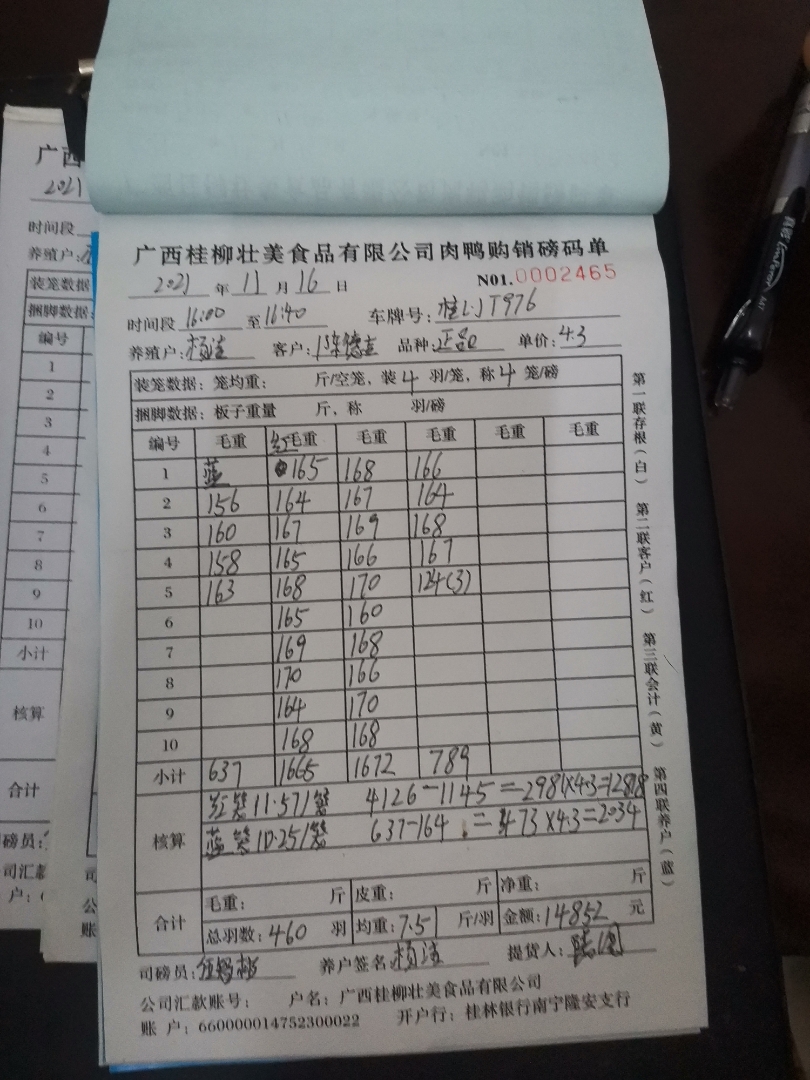 广西桂柳壮美食品有限公司肉鸭购销磅码单
2021 年 11 月 16 日 N01.0002465
时间段 16:00 至 16:40 车牌号: T976
养殖户: 杨 客户: 德 品种: 正品 单价: 4.3
装笼数据: 笼均重: 斤/空笼, 装 4 羽/笼, 称 4 笼/磅
捆脚数据: 板子重量 斤, 称 羽/磅
编号 毛重 红毛重 毛重 毛重 毛重 毛重
1 蓝 165 168 166
2 156 164 167 164
3 160 167 169 168
4 158 165 166 167
5 163 168 170 124(3)
6 165 160
7 169 168
8 170 166
9 164 170
10 168 168
小计 637 1665 1672 789
核算
红笼 11.57/笼 4126-1145=2981×4.3=12818
蓝笼 10.25/笼 637-164=473×4.3=2034
合计
毛重: 斤 皮重: 斤 净重: 斤
总羽数: 460 羽 均重: 7.51 斤/羽 金额: 14852 元
司磅员: 养户签名: 杨 提货人:
公司汇款账号: 户名: 广西桂柳壮美食品有限公司
账 户: 660000014752300022 开户行: 桂林银行南宁隆安支行
第一联存根(白) 第二联客户(红) 第三联会计(黄) 第四联养户(蓝)
广西
2021
时间段
养殖户:
装笼数据
捆脚数据:
编号
1
2
3
4
5
6
7
8
9
10
小计
核算
合计
磅员:
司汇款
户: